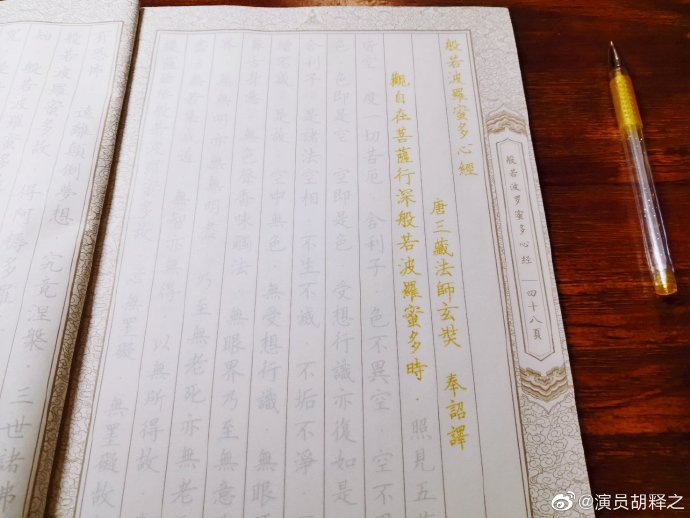 般若波羅蜜多心經
唐三藏法師玄奘 奉詔譯
觀自在菩薩行深般若波羅蜜多時．照見五
皆空 度一切苦厄．舍利子 色不異空 空不
色 色即是空 空即是色 受想行識亦復如是
舍利子 是諸法空相．不生不滅 不垢不淨
增不減 是故 空中無色 無受想行識 無眼
鼻舌身意 無色聲香味觸法 無眼界乃至無意
無無明亦無無明盡 乃至無老死亦無老
道 無 得．以無所得故
般若波羅 心無罣礙 無罣礙故
有恐怖 遠離顛倒夢想．究竟涅槃．三世諸佛
般若波羅蜜多故 得阿耨多羅
般若波罗蜜多心经 四十八頁
@演员胡释之